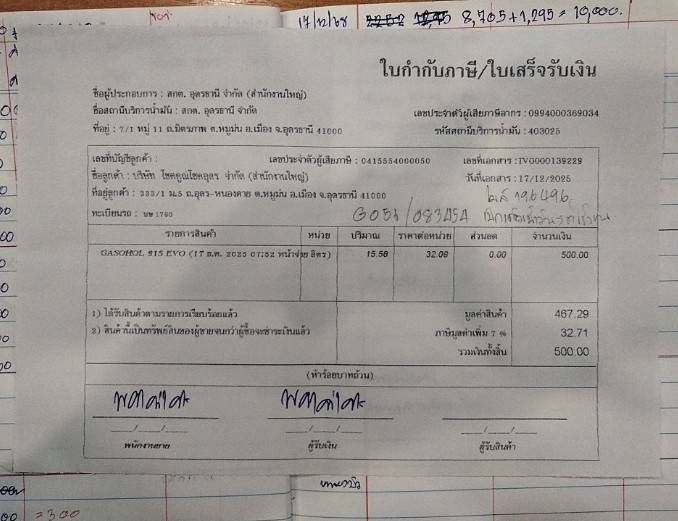 17/12/68 8,705+1,295 = 10,000.
ใบกำกับภาษี/ใบเสร็จรับเงิน
ชื่อผู้ประกอบการ : สกต. อุดรธานี จำกัด (สำนักงานใหญ่)
ชื่อสถานีบริการน้ำมัน : สกต. อุดรธานี จำกัด
เลขประจำตัวผู้เสียภาษีอากร : 0994000369034
ที่อยู่ : 7/1 หมู่ 11 ถ.มิตรภาพ ต.หมูม่น อ.เมือง จ.อุดรธานี 41000
รหัสสถานีบริการน้ำมัน : 403025
เลขที่บัญชีลูกค้า : เลขประจำตัวผู้เสียภาษี : 0415554000050 เลขที่เอกสาร : IV0000139229
ชื่อลูกค้า : บริษัท โชคคูณโชคอุดร จำกัด (สำนักงานใหญ่) วันที่เอกสาร : 17/12/2025
ที่อยู่ลูกค้า : 333/1 ม.5 ถ.อุดร-หนองคาย ต.หมูม่น อ.เมือง จ.อุดรธานี 41000
ไมล์ 196496
ทะเบียนรถ : บษ 1780
รายการสินค้า หน่วย ปริมาณ ราคาต่อหน่วย ส่วนลด จำนวนเงิน
GASOHOL 91S EVO (17 ธ.ค. 2025 07:52 หน้าจ่าย ลิตร) 15.58 32.08 0.00 500.00
1) ได้รับสินค้าตามรายการเรียบร้อยแล้ว มูลค่าสินค้า 467.29
2) สินค้านี้เป็นทรัพย์สินของผู้ขายจนกว่าผู้ซื้อจะชำระเงินแล้ว ภาษีมูลค่าเพิ่ม 7 % 32.71
รวมเงินทั้งสิ้น 500.00
(ห้าร้อยบาทถ้วน)
พนักงานขาย ผู้รับเงิน ผู้รับสินค้า
= 300